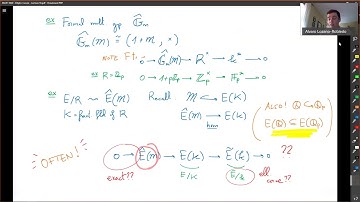 ex Formal mult gp Ĝm
Ĝm(m) ≅ (1+m, ×)
NOTE 0 → Ĝm(m) → R* → k* → 0
ex R = Zp 0 → 1+pZp → Zp* → Fp* → 0
ex E/R ~ Ê(m) Recall m ⊂ E(K)
K = fract field of R Ê(m) → E(K)
hom
(ALSO! Q ⊂ Qp
E(Q) ⊆ E(Qp))
OFTEN!
0 → Ê(m) → E(K) → Ẽ(k) → 0 ??
exact?? E/K Ẽ/k all
Alvaro Lozano-Robledo